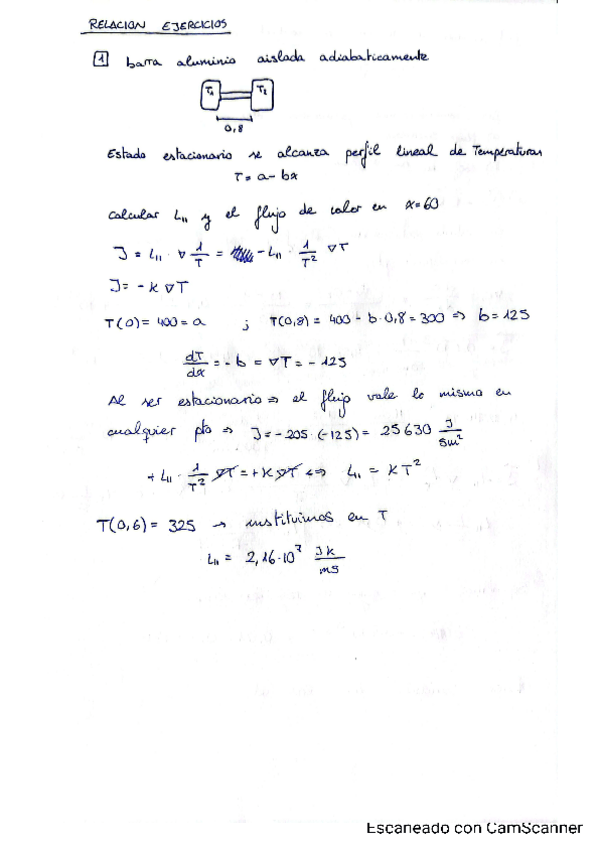 RELACION EJERCICIOS
1 barra aluminio aislada adiabaticamente
T₁ T₂
0,8
Estado estacionario se alcanza perfil lineal de Temperaturas
T = a - bx
calcular L₁₁ y el flujo de calor en x=60
J = L₁₁ · ∇ 1/T = - L₁₁ · 1/T² ∇T
J = - K ∇T
T(0) = 400 = a ; T(0,8) = 400 - b · 0,8 = 300 => b = 125
dT/dx = - b = ∇T = - 125
Al ser estacionario => el flujo vale lo mismo en
cualquier pto => J = - 205 · (-125) = 25630 J/sm²
+ L₁₁ · 1/T² ∇T = + K ∇T <=> L₁₁ = K T²
T(0,6) = 325 → instituimos en T
L₁₁ = 2,16·10⁷ JK/ms
Escaneado con CamScanner